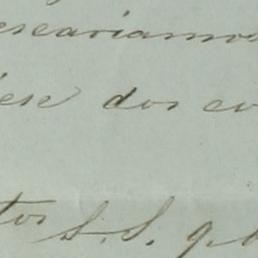 escariamos
ese dos co
tos S. S. q. b